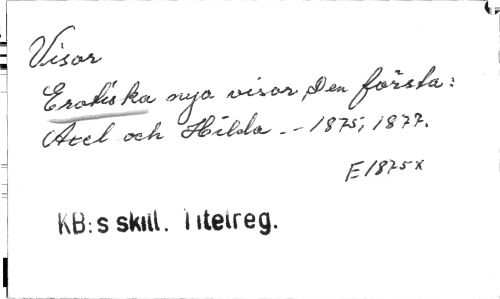 Visor
Erotiska nya visor, Den första:
Axel och Hilda. - 1875, 1877.
E1875x
KB:s skill. Titelreg.